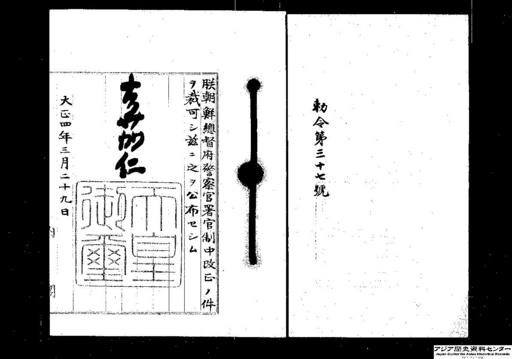 勅令第三十七號
朕朝鮮總督府警察官署官制中改正ノ件
ヲ裁可シ茲ニ之ヲ公布セシム
嘉仁
天皇
御璽
大正四年三月二十九日
内閣
アジア歴史資料センター
Japan Center for Asian Historical Records